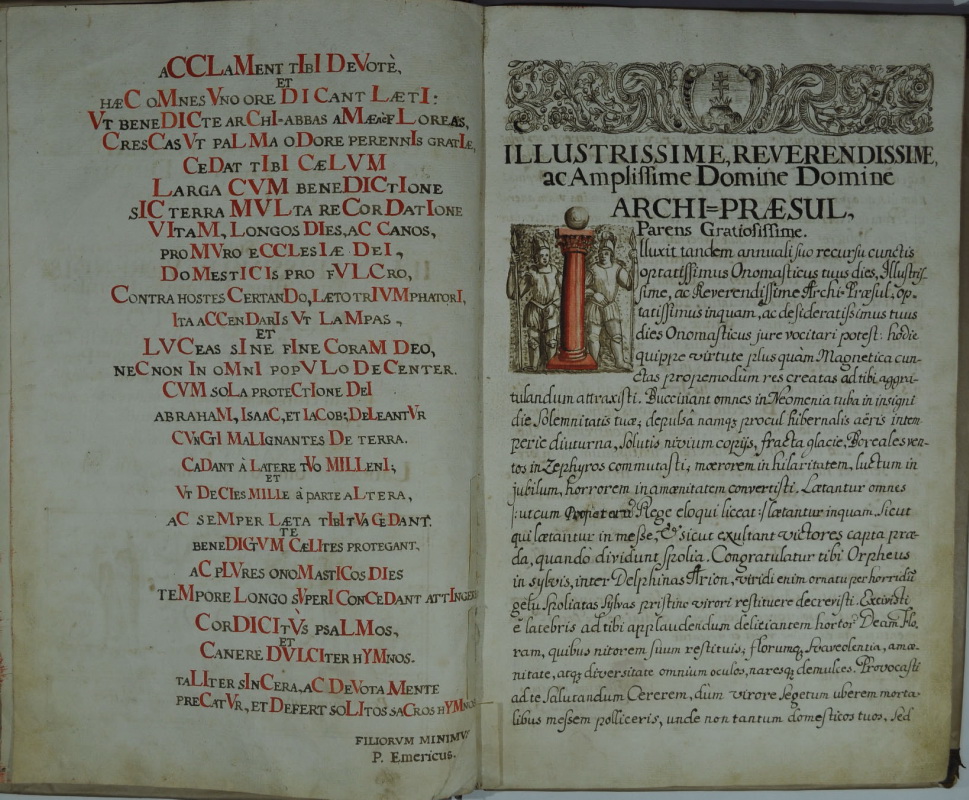 ACCLAMENT TIBI DEVOTÈ,
ET
HÆC OMNES VNO ORE DICANT LÆTI:
VT BENEDICTE ARCHI-ABBAS AMŒNÈ FLOREAS,
CRESCAS VT PALMA ODORE PERENNIS GRATIÆ,
CEDAT TIBI CÆLVM
LARGA CVM BENEDICTIONE
SIC TERRA MVLTA RECORDATIONE
VITAM, LONGOS DIES, AC CANOS,
PRO MVRO ECCLESIÆ DEI,
DOMESTICIS PRO FVLCRO,
CONTRA HOSTES CERTANDO, LÆTO TRIVMPHATORI,
ITA ACCENDARIS VT LAMPAS,
ET
LVCEAS SINE FINE CORAM DEO,
NECNON IN OMNI POPVLO DECENTER.
CVM SOLA PROTECTIONE DEI
ABRAHAM, ISAAC, ET IACOB; DELEANTVR
CVNGI MALIGNANTES DE TERRA.
CADANT À LATERE TVO MILLENI;
ET
VT DECIES MILLE à PARTE ALTERA,
AC SEMPER LÆTA TIBI TVA CEDANT.
TE
BENEDICTVM CÆLITES PROTEGANT.
AC PLVRES ONOMASTICOS DIES
TEMPORE LONGO SVPERI CONCEDANT ATTINGERE
CORDICITVS PSALMOS,
ET
CANERE DVLCITER HYMNOS.
TALITER SINCERA, AC DEVOTA MENTE
PRECATVR, ET DEFERT SOLITOS SACROS HYMNOS
FILIORVM MINIMVS
P. Emericus.
ILLUSTRISSIME, REVERENDISSIME,
ac Amplissime Domine Domine
ARCHI=PRÆSUL,
Parens Gratiosissime.
Illuxit tandem annuali suo recursu cunctis
optatissimus Onomasticus tuus dies, Illustris-
sime, ac Reverendissime Archi-Præsul, op-
tatissimus inquam, ac desideratissimus tuus
dies Onomasticus jure vocitari potest: hodie
quippe virtute plusquàm Magnetica cun-
ctas propemodum res creatas ad tibi aggra-
tulandum attraxisti. Buccinant omnes in Neomenia tuba in insigni
die Solemnitatis tuæ; depulsa namq; procul hibernalis aëris intem-
perie diuturna, Solutis nivium copijs, fracta glacie, Boreales ven-
tos in Zephyros commutasti; mœrorem in hilaritatem, luctum in
jubilum, horrorem in amœnitatem convertisti. Lætantur omnes
/:ut cum Rege eloqui liceat:/ lætantur inquam. Sicut
qui lætantur in messe, & sicut exultant victores capta præ-
da, quando dividunt spolia. Congratulatur tibi Orpheus
in sylvis, inter Delphinas Arion, viridi enim ornatu per horridū
gelu Spoliatas Sylvas pristino virori restituere decrevisti. Excivisti
è latebris ad tibi applaudendum deliciantem hortor. Deam Flo-
ram, quibus nitorem suum restituis; florumq; suaveolentia, amœ-
nitate, atq; diversitate omnium oculos, naresq; demulces. Provocasti
ad te Salutandum Cererem, dum virore Segetum uberem morta-
libus messem polliceris, unde non tantum domesticos tuos, Sed